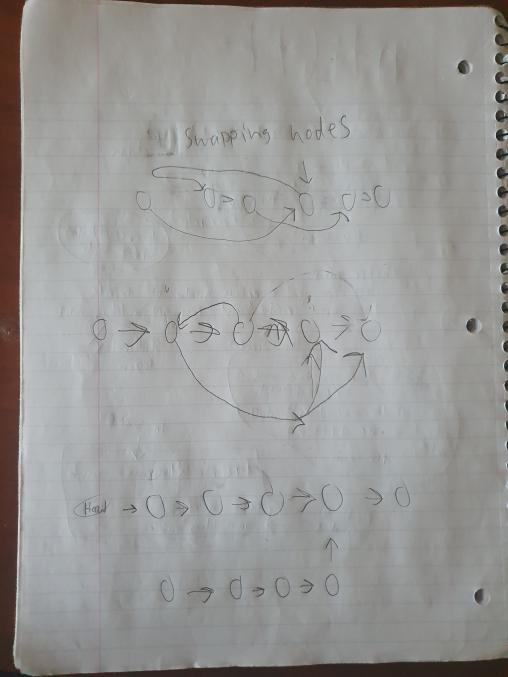 Swapping nodes
Head